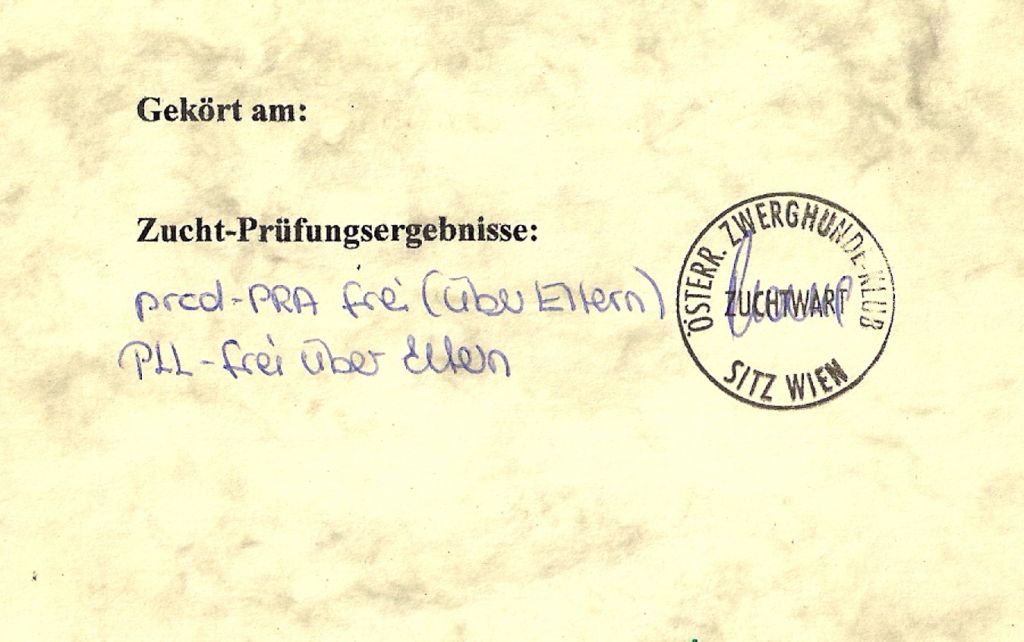 Gekört am:
Zucht-Prüfungsergebnisse:
prcd-PRA frei (über Eltern)
PLL-frei über Eltern
ÖSTERR. ZWERGHUNDE-KLUB
ZUCHTWART
SITZ WIEN